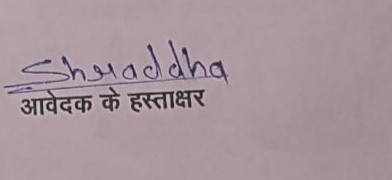 Shraddha
आवेदक के हस्ताक्षर